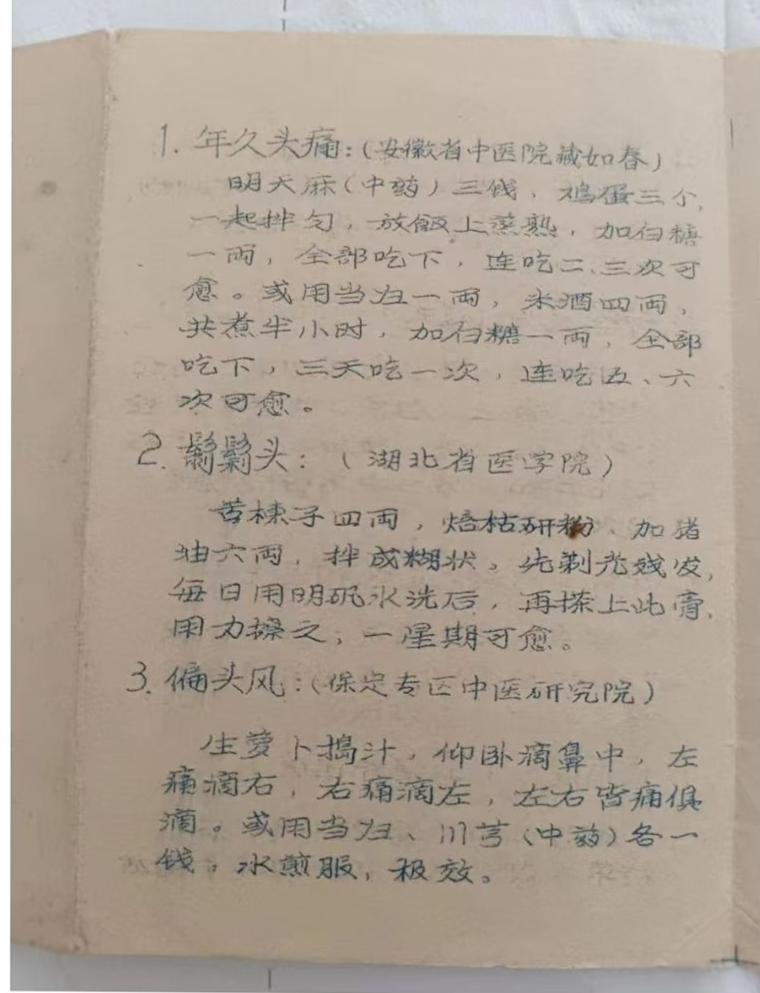 1. 年久头痛:(安徽省中医院臧如春)
明天麻(中药)三钱,鸡蛋三个,
一起拌匀,放飯上蒸熟,加白糖
一両,全部吃下,连吃二、三次可
愈。或用当归一両,米酒四両,
共煮半小时,加白糖一両,全部
吃下,三天吃一次,连吃五、六
次可愈。
2. 鬎鬁头:(湖北省医学院)
苦楝子四両,焙枯研粉、加猪
油六両,拌成糊状。先剃光残发,
每日用明矾水洗后,再搽上此膏,
用力擦之,一星期可愈。
3. 偏头风:(保定专区中医研究院)
生萝卜捣汁,仰卧滴鼻中,左
痛滴右,右痛滴左,左右皆痛俱
滴。或用当归、川芎(中药)各一
钱,水煎服,极效。